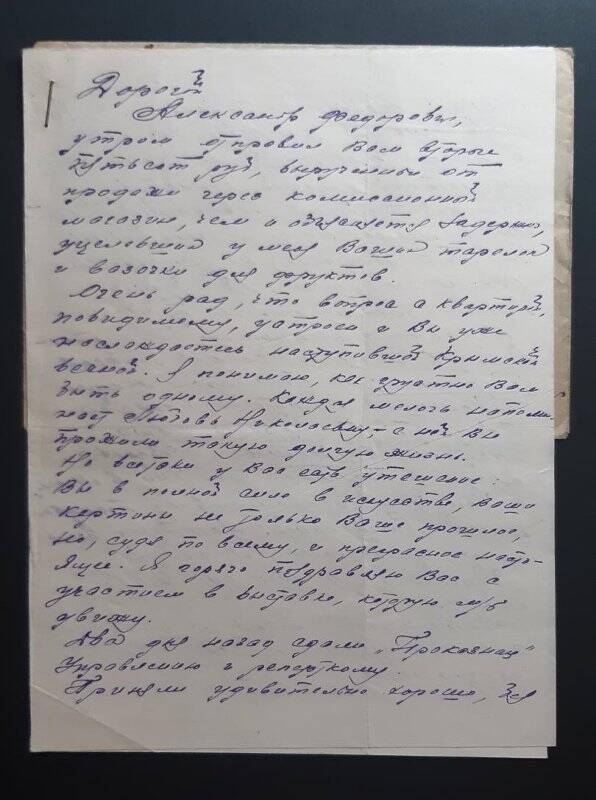 Дорогой
Александр Федорович,
утром отправил Вам вторые
пятьсот руб, вырученные от
продажи через комиссионный
магазин, чем и объясняется задержка,
уцелевших у меня Ваших тарелок
и вазочки для фруктов.
Очень рад, что вопрос с квартирой,
повидимому, устроен и Вы уже
наслаждаетесь наступившей Крымской
весной. Я понимаю, как грустно Вам
быть одному. Каждая мелочь напоми-
нает Любовь Николаевну, – с ней Вы
прожили такую долгую жизнь.
Но всетаки у Вас есть утешение:
Вы в полной силе в искусстве, Ваши
картины не только Ваше прошлое,
но, судя по всему, и прекрасное насто-
ящее. Я горячо поздравляю Вас с
участием в выставке, которую м/б
увижу.
Два дня назад сдали „Проказниц"
Управлению и реперткому.
Приняли удивительно хорошо,